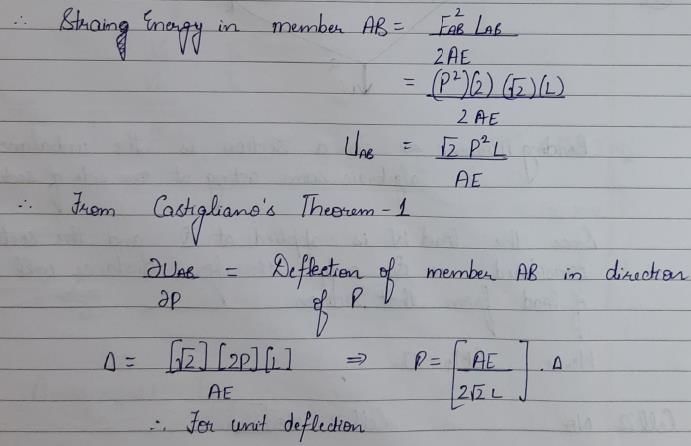 ∴ Straing Energy in member AB = F²AB LAB / 2AE
= (P²)(2) (√2)(L) / 2AE
UAB = √2 P²L / AE
∴ From Castigliano's Theorem - 1
∂UAB / ∂P = Deflection of member AB in direction of P.
Δ = [√2] [2P] [L] / AE ⇒ P = [AE / 2√2 L] . Δ
∴ For unit deflection